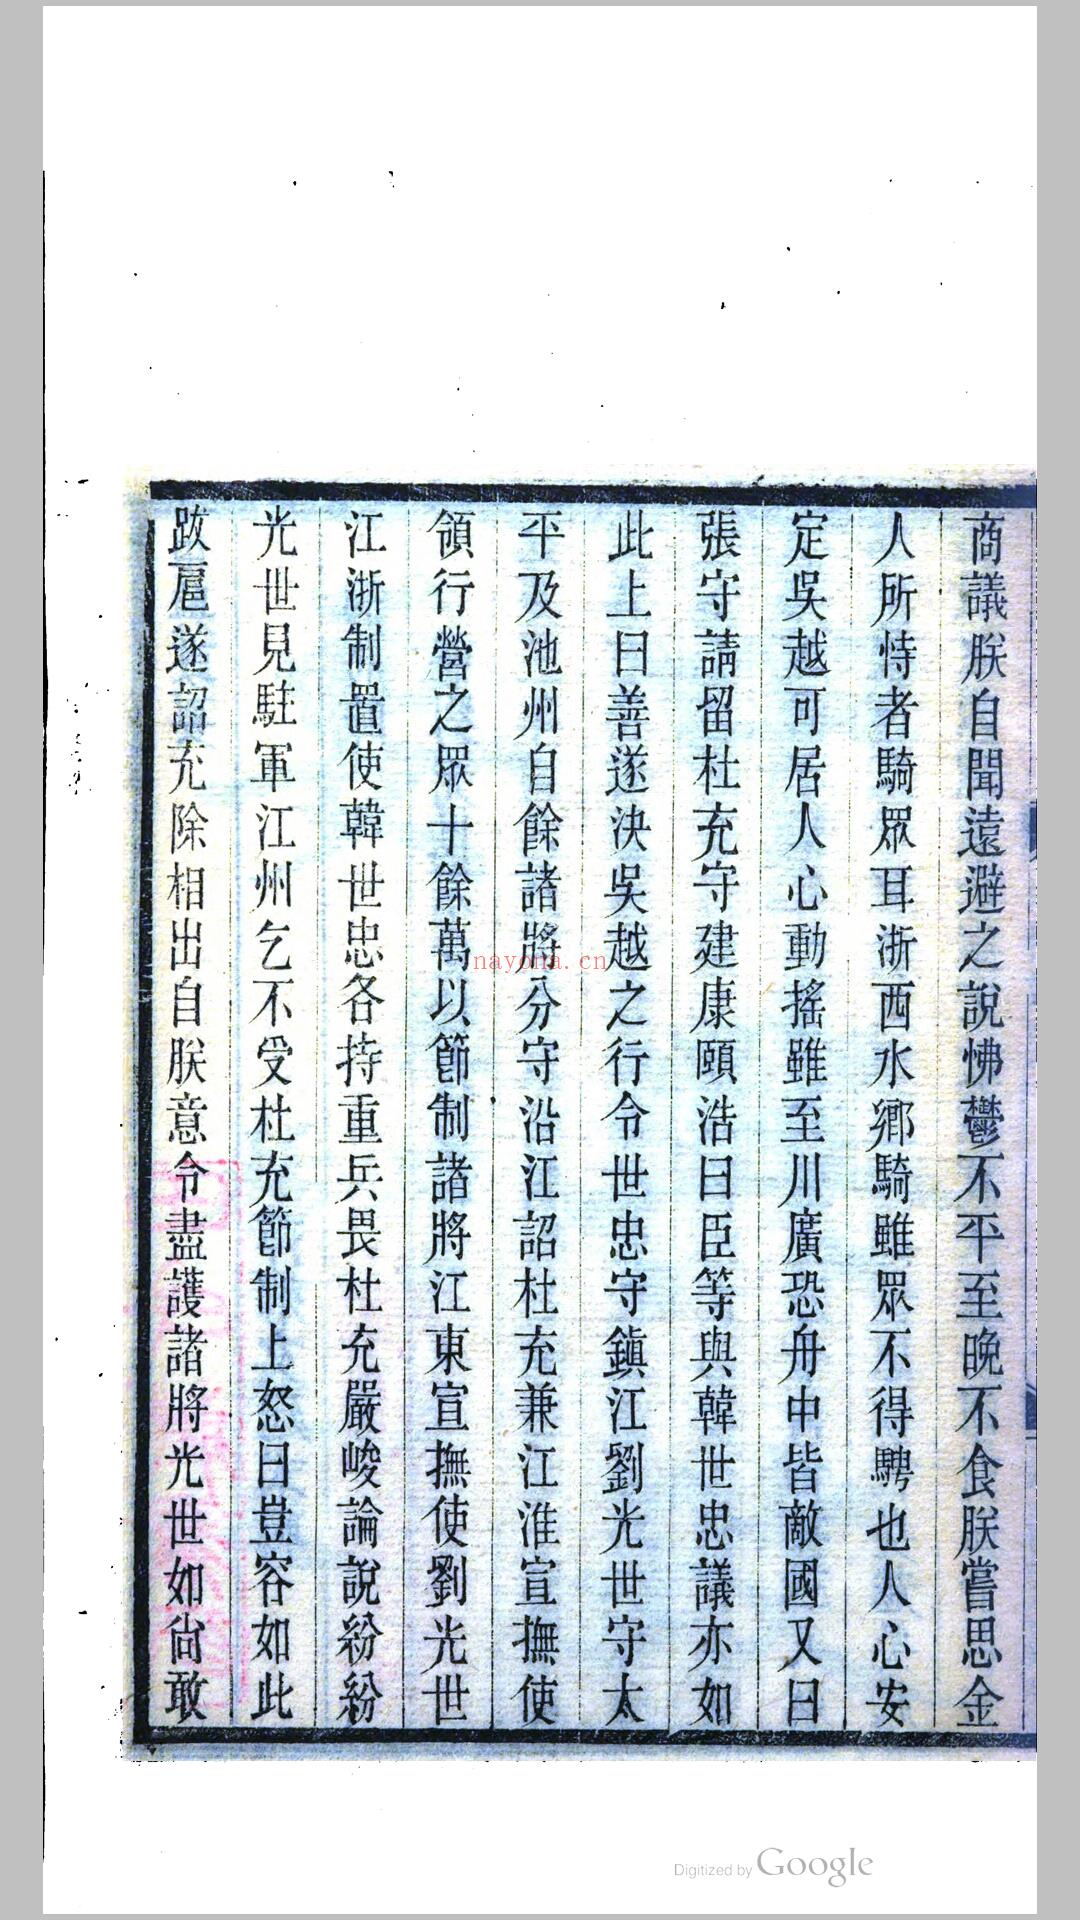 商議朕自聞遠避之說怫鬱不平至晚不食朕嘗思金
人所恃者騎眾耳浙西水鄉騎雖眾不得騁也人心安
定吳越可居人心動搖雖至川廣恐舟中皆敵國又曰
張守請留杜充守建康頤浩曰臣等與韓世忠議亦如
此上曰善遂決吳越之行令世忠守鎮江劉光世守太
平及池州自餘諸將分守沿江詔杜充兼江淮宣撫使
領行營之眾十餘萬以節制諸將江東宣撫使劉光世
江浙制置使韓世忠各持重兵畏杜充嚴峻論說紛紛
光世見駐軍江州乞不受杜充節制上怒曰豈容如此
跋扈遂詔充除相出自朕意令盡護諸將光世如尙敢
nayona.cn
Digitized by Google